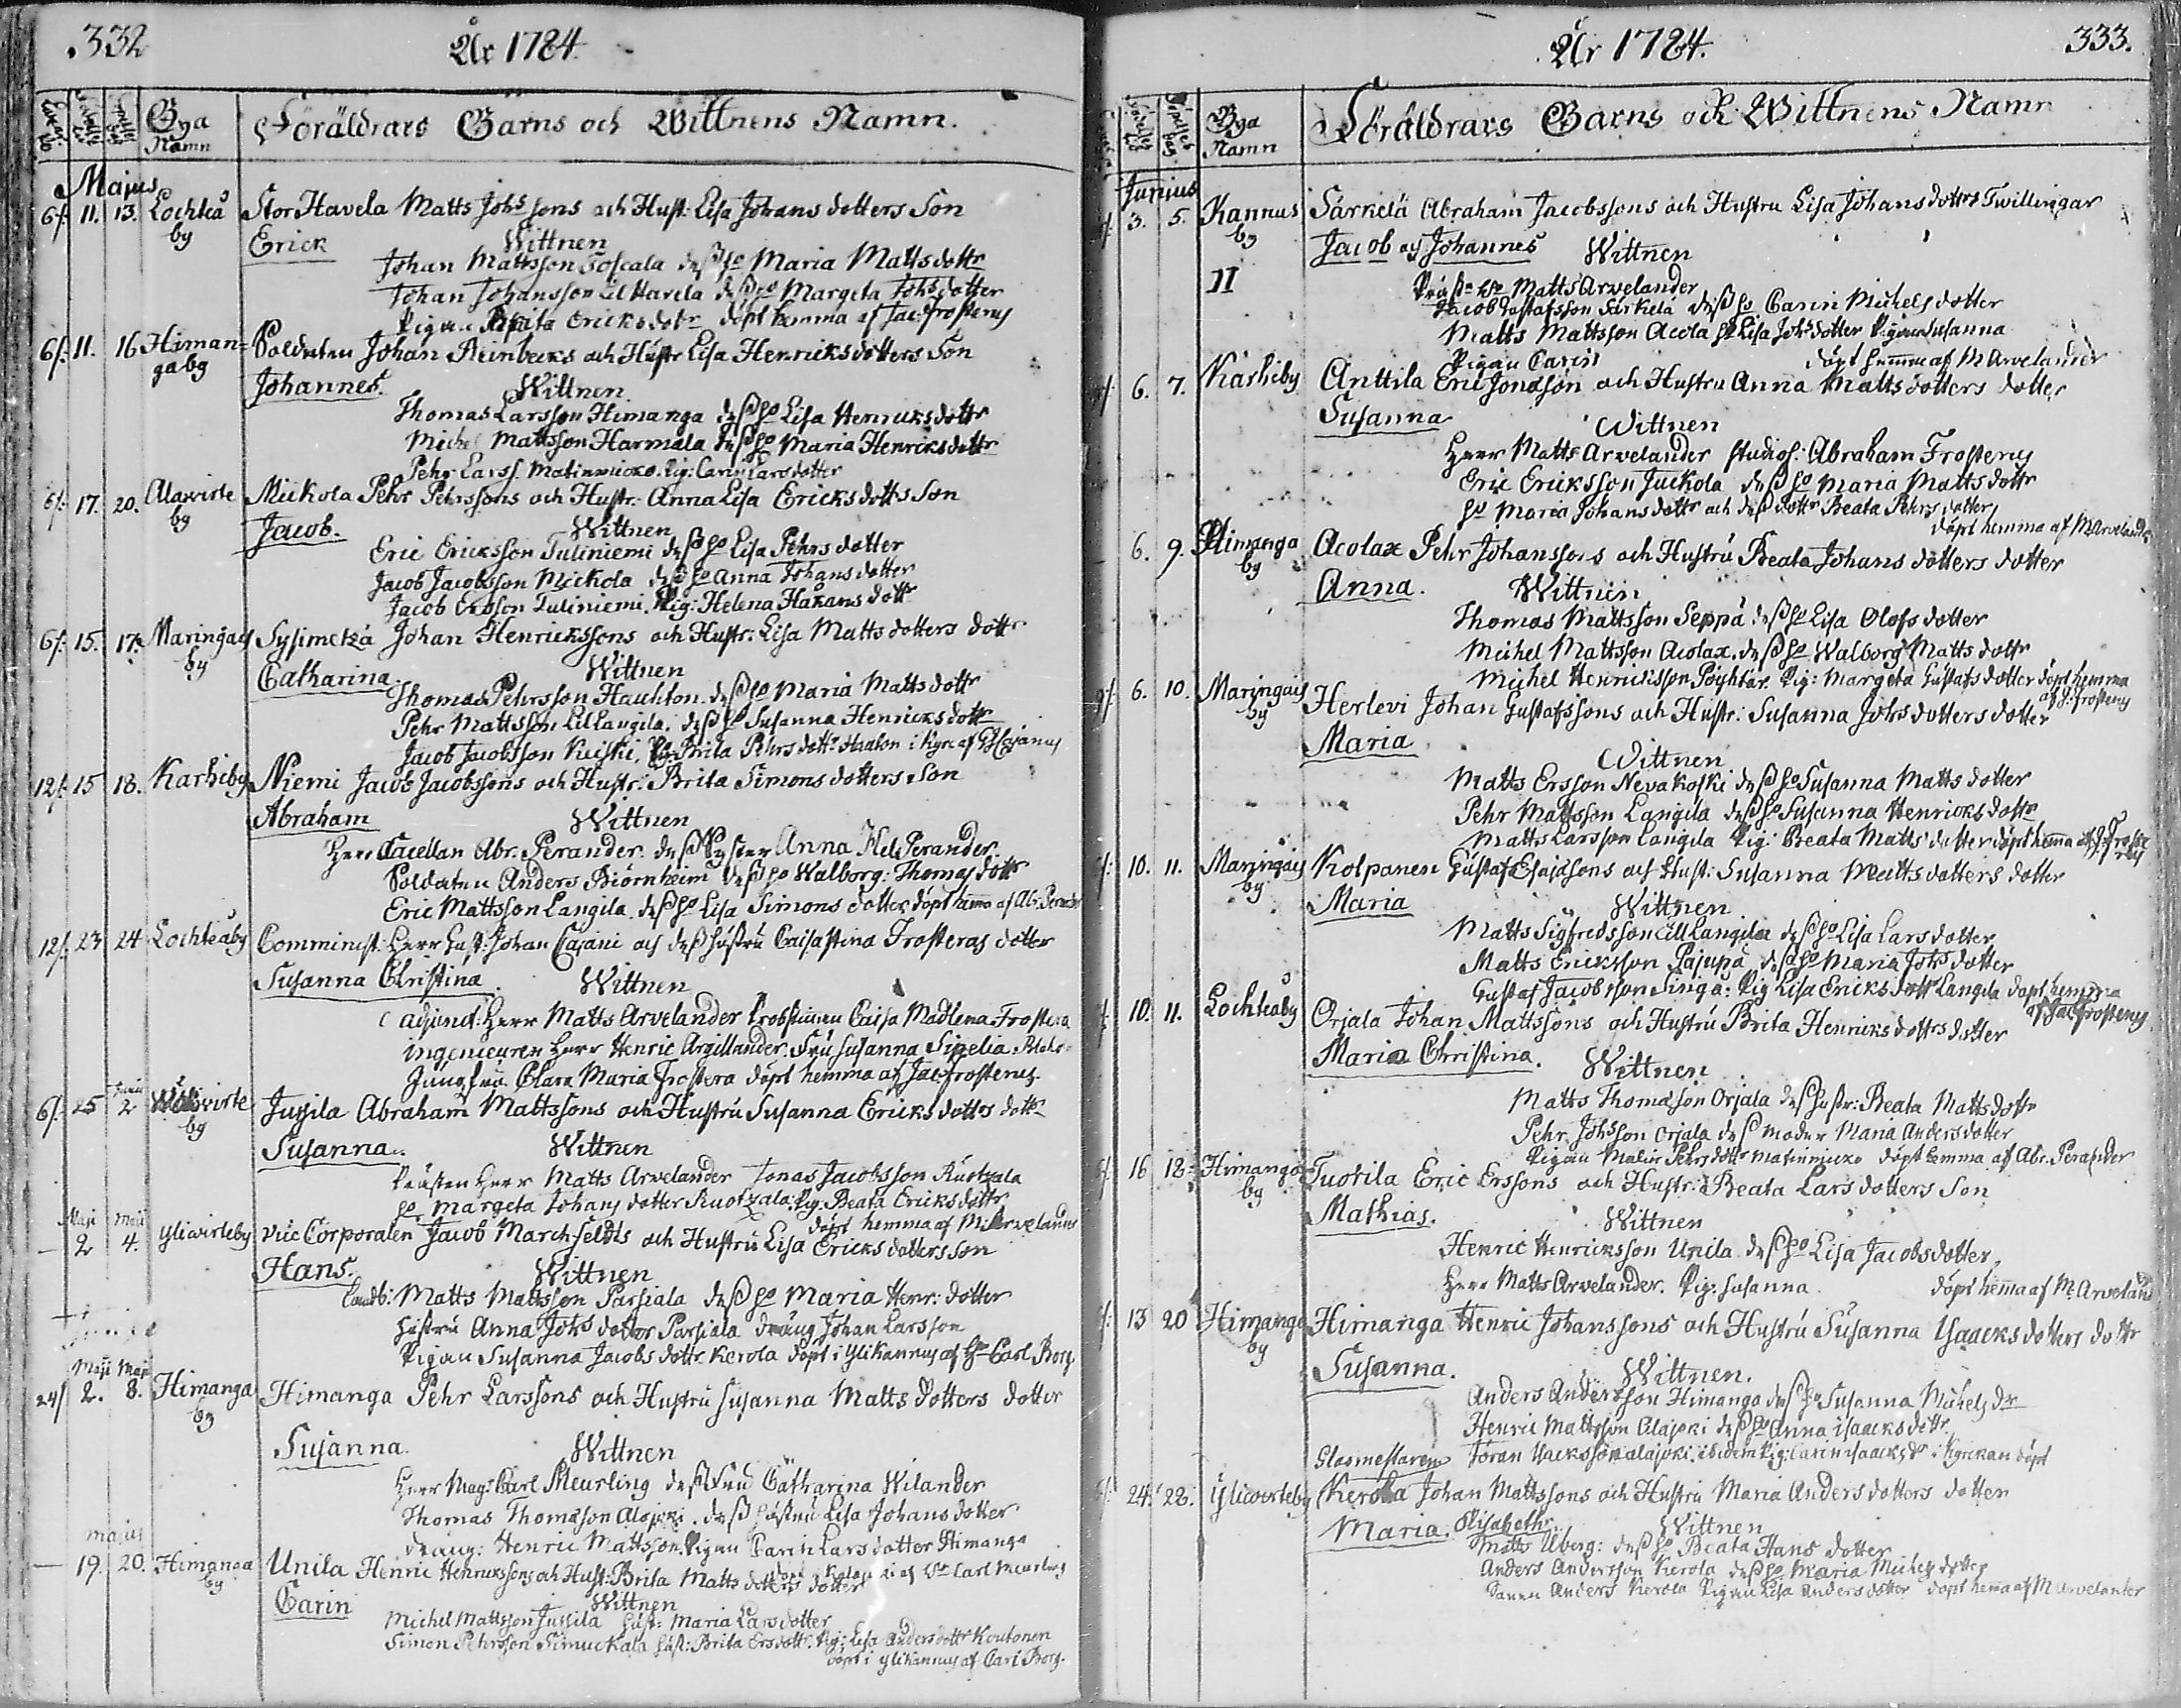 332
År 1784.
Bya Namn
Föräldrars Barns och Wittnens Namn.
Majus
6/: 11. 13. Lochteå Stor Havela Matts Johs sons och Hust: Lisa Johans dotters Son
by Erick Wittnen
Johan Mattsson Toscala dess ho Maria Matts dottr
Johan Johansson Lil Havela dess ho Margeta Johs dotter
Pigan Brita Ericks dottr döpt hemma af Jac: Frosterus
6/: 11. 16 Himan= Soldaten Johan Reinbecks och Hustr Lisa Henricks dotters Son
ga by Johannes. Wittnen
Thomas Larsson Himanga dess ho Lisa Henricks dottr
Michel Mattsson Harmala dess ho Maria Henricks dottr
Pehr Larss. Matinmicko. Pig: Carin Lars dotter
6/: 17. 20. Alawirte Mickola Pehr Pehrssons och Hustr: Anna Lisa Ericks dottrs Son
by Jacob. Wittnen
Eric Ericksson Tuliniemi dess ho Lisa Pehrs dotter
Jacob Jacobsson Mickola dess ho Anna Johans dotter
Jacob Ersson Tuliniemi. Pig: Helena Håkans dottr
6/: 15. 17. Maringais Sysimetzä Johan Henrickssons och Hustr: Lisa Matts dotters dottr
by Catharina. Wittnen
Thomas Pehrsson Hauhton. dess ho Maria Matts dottr
Pehr Mattsson Lil Langila. dess ho Susanna Henricks dottr
Jacob Jacobsson Kuiski. Pig: Brita Pehrs dottr i Kyrc af Cajanus
12/: 15 18. Karhiby Niemi Jacob Jacobssons och Hustr: Brita Simons dotters Son
Abraham Wittnen
Herr Cacellan Abr. Perander. dess Syster Anna Hel. Perander.
Soldaten Anders Biörnheim dess ho Walborg: Thomas dottr
Eric Mattsson Langila. dess ho Lisa Simons dotter döpt hemma af Abr. Perander
12/: 23 24 Lochteåby Comminist: Herr Gust: Johan Cajani och dess hustru Caisa Stina Frosteras dotter
Susanna Christina. Wittnen
adjunct: Herr Matts Arvelander Probstinnan Caisa Madlena Frostera
ingenieuren Herr Henric Argillander. Fru Susanna Sipelia
Jungfru Clara Maria Frostera döpt hemma af Jac Frosterus.
Junii
6/: 25 2 Wliwirte Jussila Abraham Mattssons och Hustru Susanna Ericks dottrs dottr
by Susanna. Wittnen
Prästen Herr Matts Arwelander Jonas Jacobsson Ruotzala
ho Margeta Johans dotter Ruotzala. Pig: Beata Ericks dottr
döpt hemma af M: Arvelander
Maji Maji
— 2 4. Yliwirteby vice Corporalen Jacob Marchfeldts och Hustru Lisa Ericks dotters son
Hans. Wittnen
Landb: Matts Mattsson Parsiala dess ho Maria Henr: dotter
hustru Anna Johs dotter Parsiala dräng Johan Larsson
Pigan Susanna Jacobs dottr. Kerola döpt i Ylikannus af Hr Carl Borg.
Maji Maji
24/ 2. 8. Himanga Himanga Pehr Larssons och Hustru Susanna Matts dotters dotter
by
Susanna. Wittnen
Herr Mag: Carl Meurling dess Fru Catharina Wilander
Thomas Thomasson Alajoki. dess hustru Lisa Johans dotter
dräng: Henric Mattsson. Pigan Carin Lars dotter Himanga
af Hr Carl Meurling
majus
— 19. 20. Himanga Unila Henric Henrickssons och Hust: Brita Matts dotters dotter
by Carin Wittnen
Michel Mattsson Jussila hust: Maria Lars dotter
Simon Pehrsson Simuckala hust: Brita Ers dottr. Pig: Lisa Anders dottr Koutonen
döpt i Ylikannus af Carl Borg.
År 1784.
333.
Bya Namn
Föräldrars Barns och Wittnens Namn
Junius
3. 5. Kannus Särkelä Abraham Jacobssons och Hustru Lisa Johans dottrs Twillingar
by Jacob och Johannes Wittnen
II Präst: Hr Matts Arvelander
Jacob Gustafsson Särkelä dess ho Carin Michels dotter
Matts Mattsson Acola ho Lisa Johs dotter Pigan Susanna
Pigan Carin döpt hemma af M Arvelander
6. 7. Karhiby Anttila Eric Jonasson och Hustru Anna Matts dotters dotter
Susanna Wittnen
Herr Matts Arvelander studios: Abraham Frosterus
Eric Ericksson Juckola dess ho Maria Matts dottr
ho Maria Johans dottr och dess dottr Beata Pehrs dotter
döpt hemma af M Arvelander
6. 9. Himanga Acolax Pehr Johanssons och Hustru Beata Johans dotters dotter
by Anna. Wittnen
Thomas Mattsson Seppä dess ho Lisa Olofs dotter
Michel Mattsson Acolax. dess ho Walborg Matts dottr
Michel Henricksson Pöyhtär. Pig: Margeta Gustafs dotter döpt hemma
af J: Frosterus
6. 10. Maringais Herlevi Johan Gustafssons och Hustr: Susanna Johs dotters dotter
by Maria Wittnen
Matts Ersson Nevakoski dess ho Susanna Matts dotter
Pehr Mattsson Langila dess ho Susanna Henricks dottr
Matts Larsson Langila Pig: Beata Matts dotter döpt hemma af J: Frosterus
10. 11. Maringais Kolpanen Gustaf Esaiasons och Hust: Susanna Matts dotters dotter
by Maria Wittnen
Matts Sigfredsson Lill Langila dess ho Lisa Lars dotter
Matts Ericksson Pajupä dess ho Maria Johs dotter
Gustaf Jacobsson Singa: Pig Lisa Ericks dottr Langila döpt hemma
af Jac Frosterus
10. 11. Lochteåby Orjala Johan Mattssons och Hustru Brita Henricks dottrs dotter
Maria Christina. Wittnen
Matts Thomasson Orjala dess hustr: Beata Matts dottr
Pehr Johsson Orjala dess moder Maria Anders dotter
Pigan Malin Pehrs dottr Matinmicko döpt hemma af Abr. Perander
16 18. Himanga Tuorila Eric Erssons och Hustr: Beata Lars dotters Son
by Mathias. Wittnen
Henric Henricksson Unila dess ho Lisa Jacobs dotter,
Herr Matts Arvelander. Pig: Susanna döpt hemma af M: Arveland
13 20 Himanga Himanga Henric Johanssons och Hustru Susanna Ysaacks dotters dottr
by
Susanna. Wittnen.
Anders Andersson Himanga dess ho Susanna Michels dr
Henric Mattsson Alajoki dess ho Anna isaacks dottr.
Glasmestaren Jöran Isacksson alajoki. ibidem Pig: Carin isaacks dr i Kyrckan döpt
24. 28. Yliwirteby Kerola Johan Mattssons och Hustru Maria Anders dotters dotter
Maria. Elisabeth. Wittnen
Matts Uberg: dess ho Beata Hans dotter
Anders Andersson Kerola dess ho Maria Michels dotter
Sonen Anders Kerola Pigan Lisa Anders dotter döpt hemma af M Arvelander